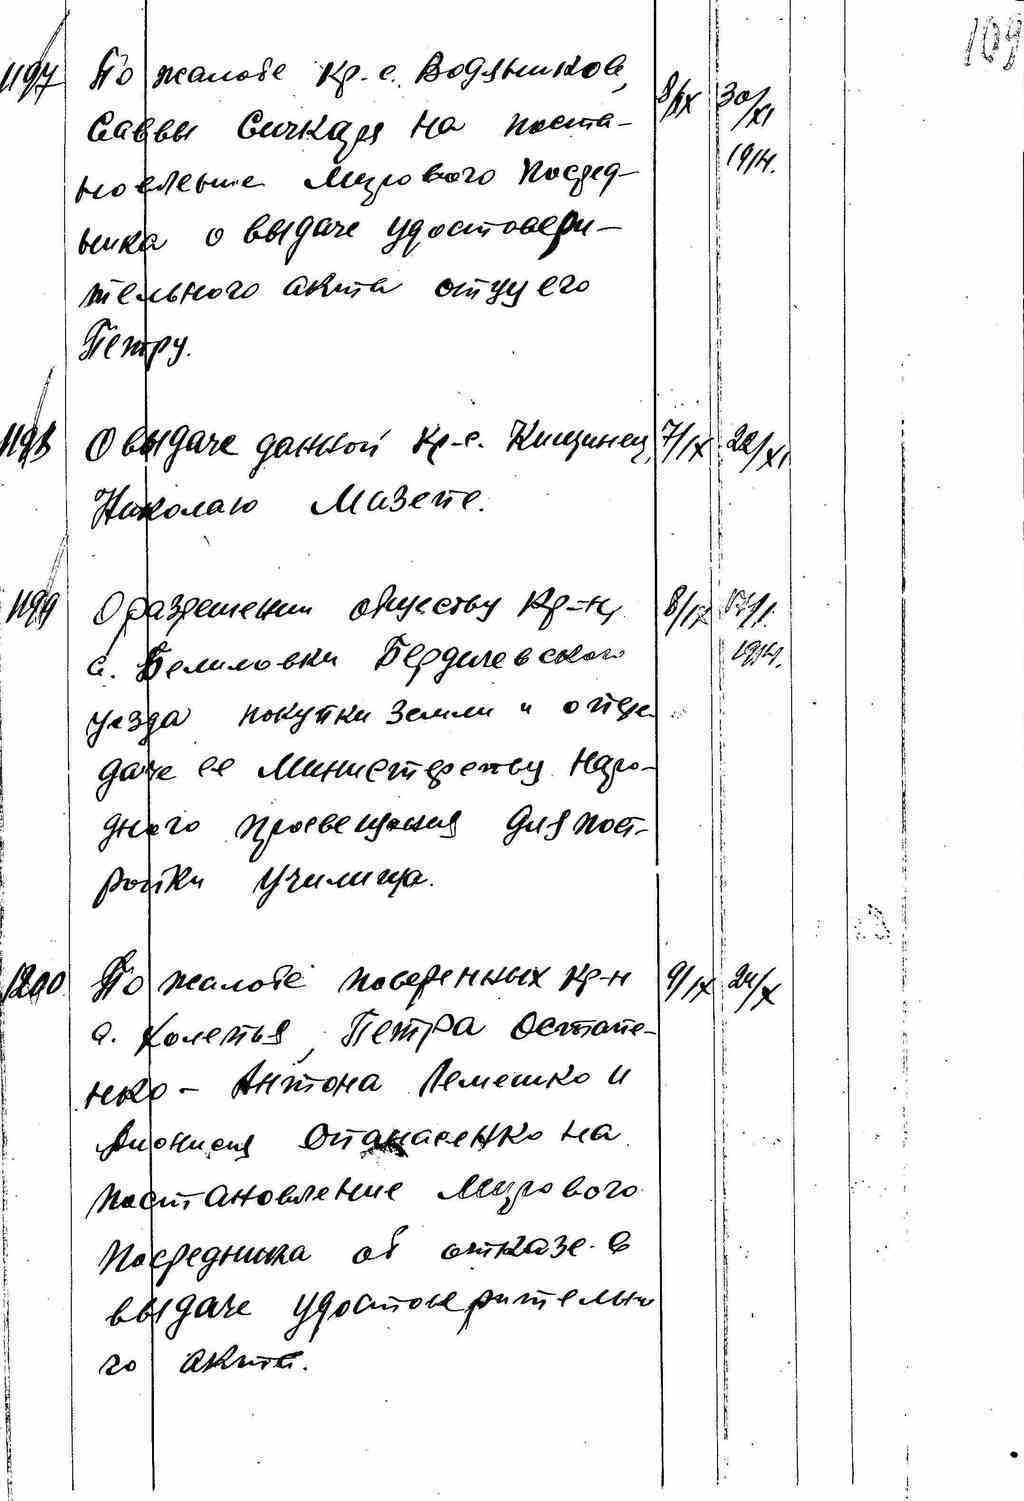 109
1197 По жалобе кр. с. Водяников, 8/IX 30/XI
Саввы Сичкаря на поста- 1914.
новление Мирового Посред-
ника о выдаче удостовери-
тельного акта отцу его
Петру.
1198 О выдаче данной кр-с. Кищинец, 7/IX 22/XI
Николаю Мазепе.
1199 О разрешении обществу кр-н, 8/IX
с. Белиловки Бердичевского 1914.
уезда покупки земли и отпе
даче ее Министерству Наро-
дного просвещения для пост-
ройки училища.
1200 По жалобе поверенных кр-н 9/IX 24/X
с. Петра Остапе-
нко - Антона Лемешко и
Дионисия Опанасенко на
постановление Мирового
Посредника об отказе в
выдаче удостоверительно
го акта.